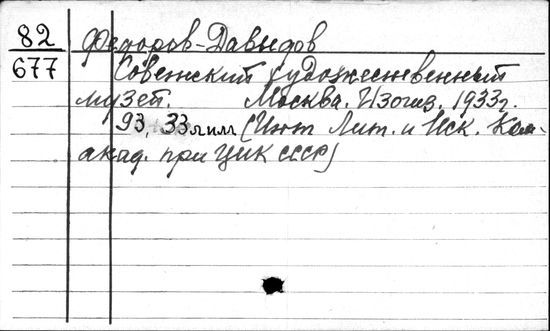 82 Федоров-Давыдов
677 Советский художественный
музей. Москва. Изогиз. 1933г.
93, 33 илл (Инт Лит. и Иск. Ком.
акад. при ЦИК СССР)